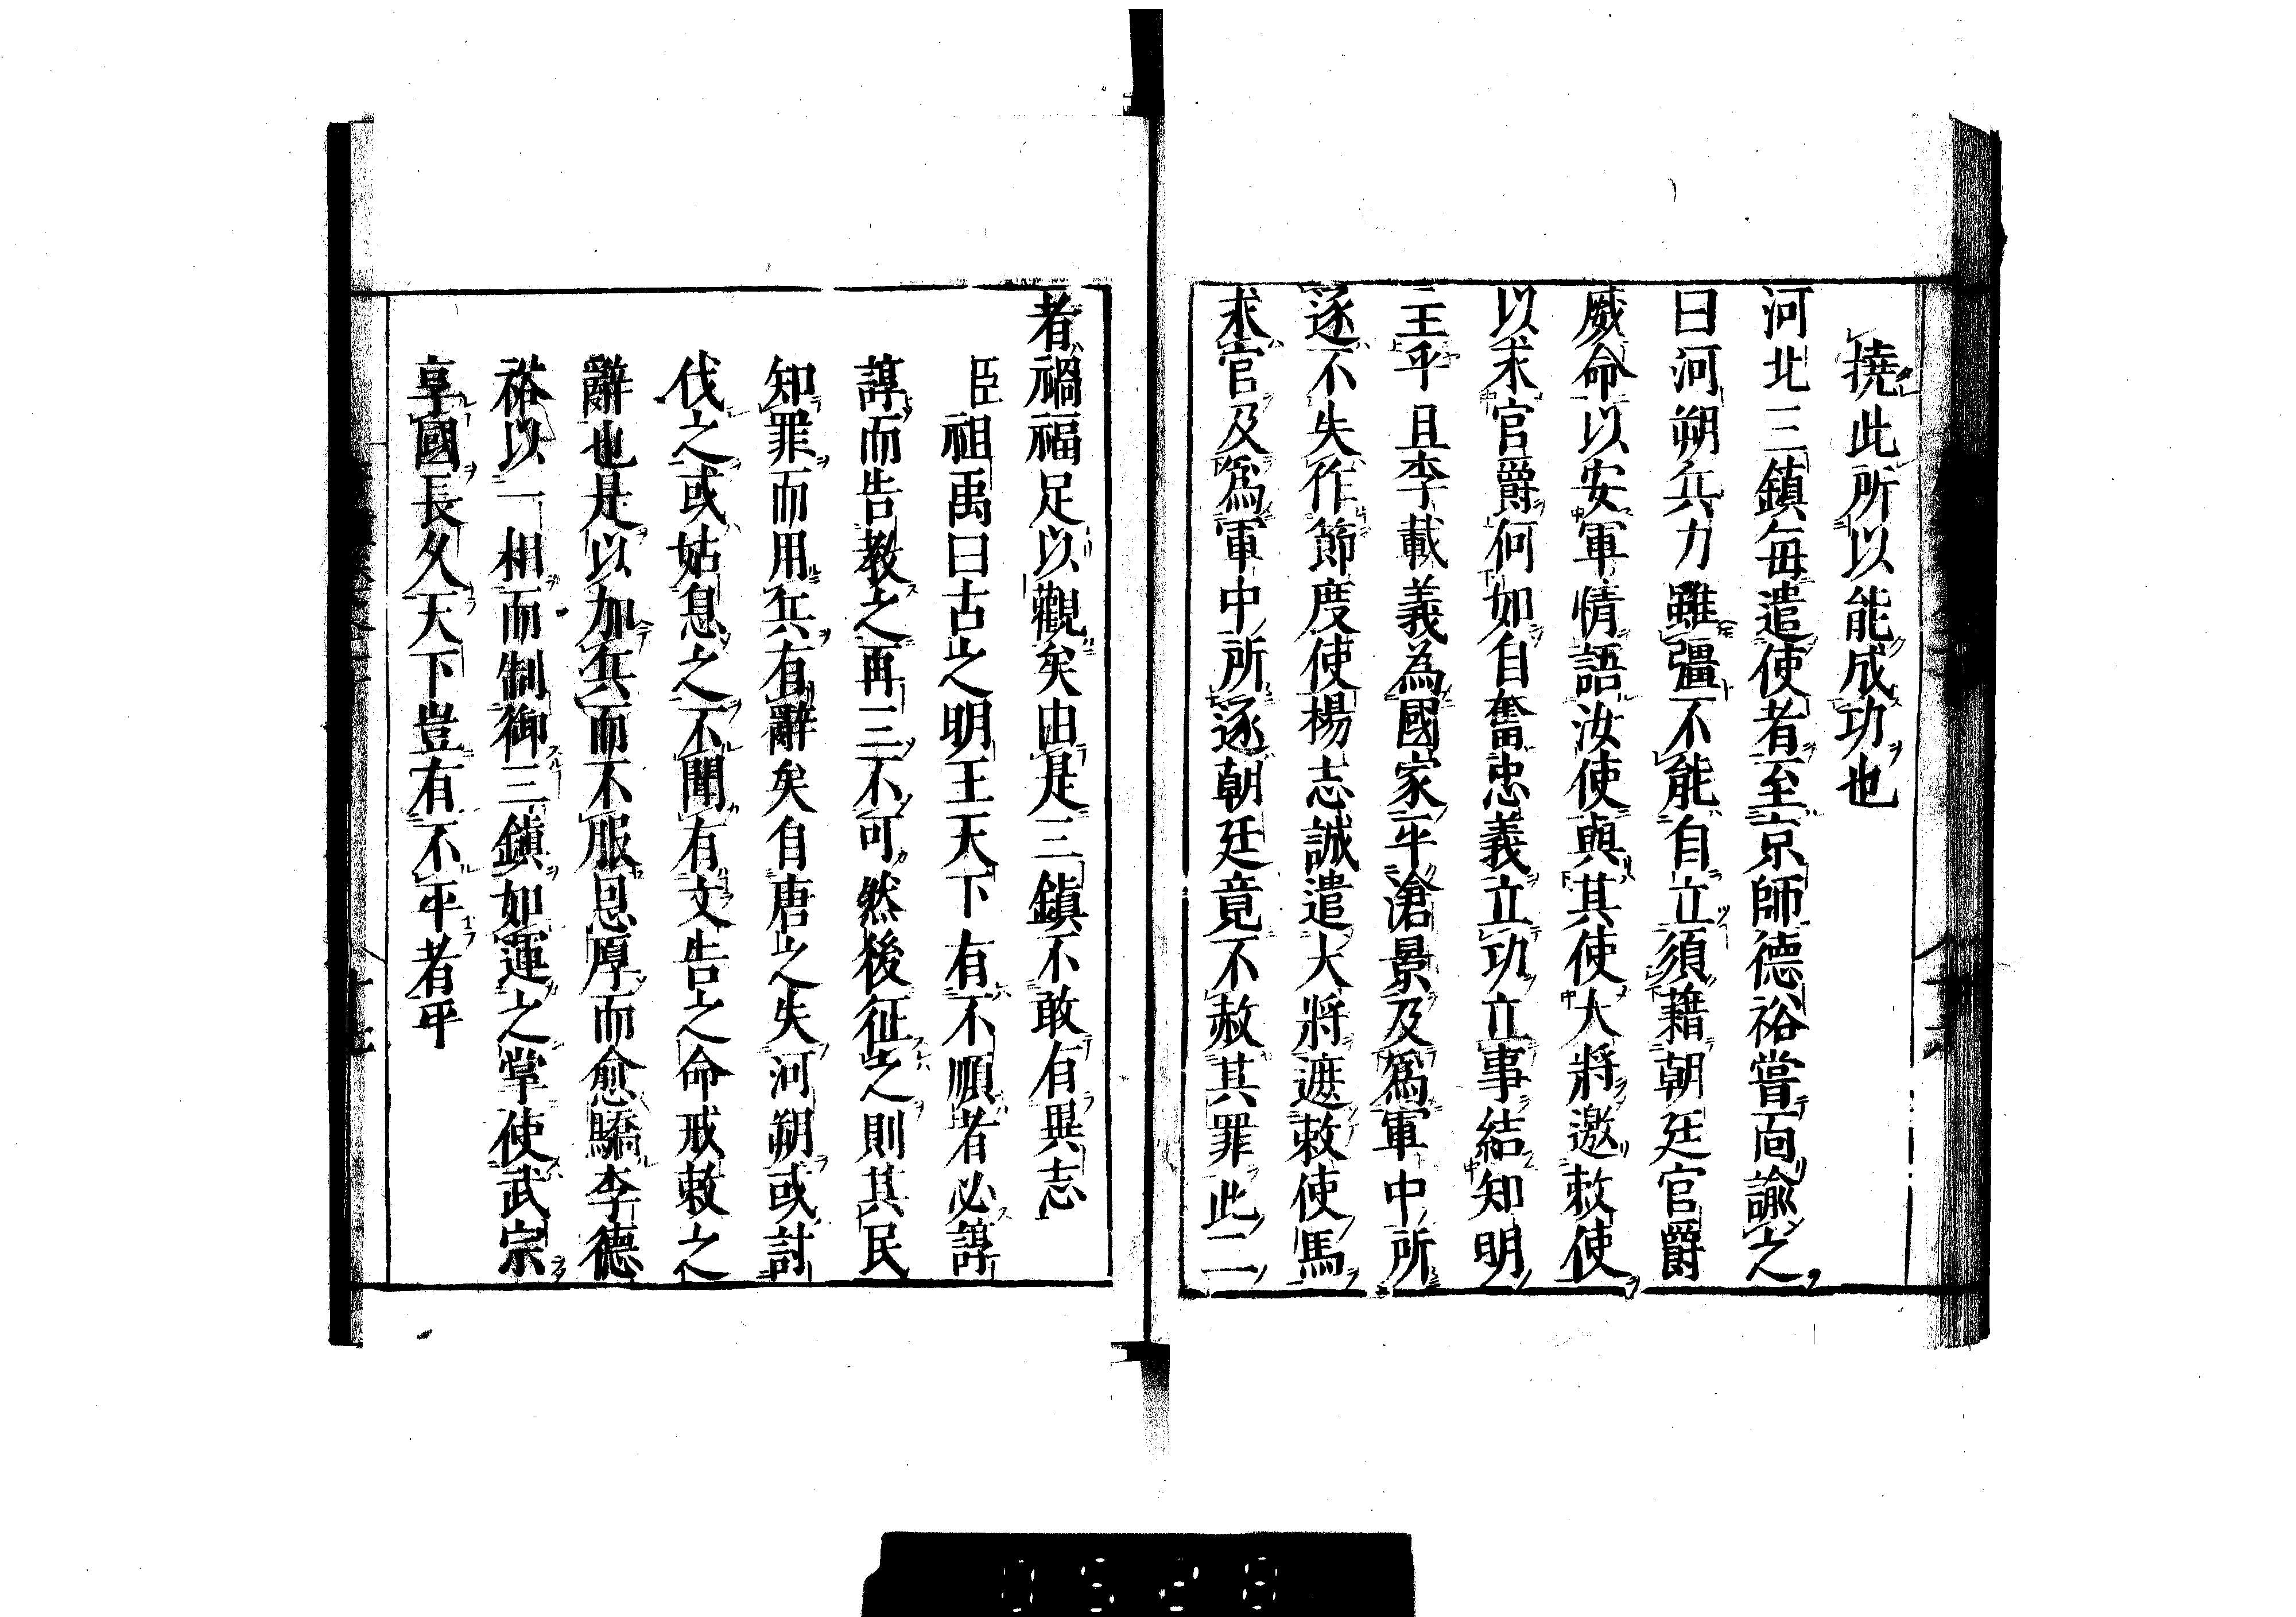 撓此所以能成功也
河北三鎮每遣使者至京師德裕嘗面諭之
曰河朔兵力雖彊不能自立須藉朝廷官爵
威命以安軍情語汝使與其使大將邀敕使
以求官爵何如自奮忠義立功立事結知明
主乎且李載義為國家平滄景及爲軍中所
逐不失作節度使楊志誠遣大將遮敕使馬
求官及爲軍中所逐朝廷竟不赦其罪此二
者禍福足以觀矣由是三鎮不敢有異志
臣祖禹曰古之明王天下有不順者必諄
諄而告教之再三不可然後征之則其民
知罪而用兵有辭矣自唐之失河朔或討
伐之或姑息之不聞有文告之命戒敕之
辭也是以加兵而不服恩厚而愈驕李德
裕以一相而制御三鎮如運之掌使武宗
享國長久天下豈有不平者乎